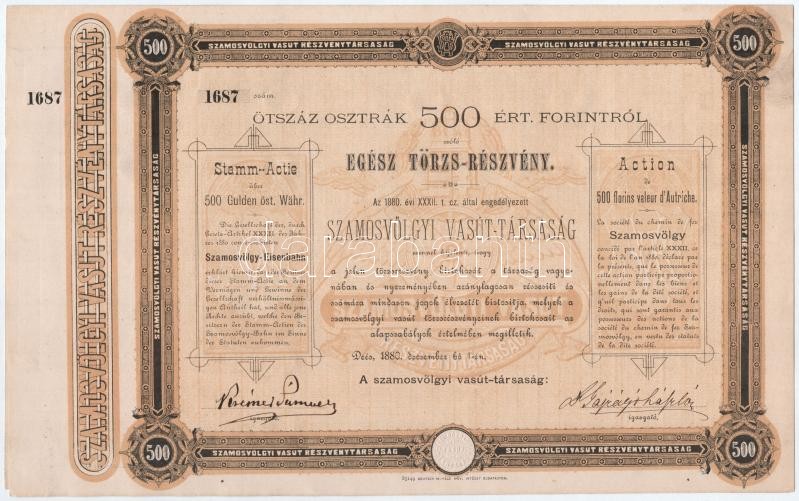 500
SZAMOSVÖLGYI VASUT RÉSZVÉNYTÁRSASÁG
SZAMOSVÖLGYI VASUT RÉSZVÉNYTÁRSASÁG
500
SZAMOSVÖLGYI VASUT RÉSZVÉNYTÁRSASÁG
1687
1687 szám.
ÖTSZÁZ OSZTRÁK 500 ÉRT. FORINTRÓL
szóló
EGÉSZ TÖRZS-RÉSZVÉNY.
Az 1880. évi XXXII. t. cz. által engedélyezett
SZAMOSVÖLGYI VASÚT-TÁRSASÁG
ezennel kijelenti, hogy
a jelen törzsrészvény birtokosát a társaság vagyo-
nában és nyereményében aránylagosan részesíti és
számára mindazon jogok élvezetét biztosítja, melyek a
szamosvölgyi vasút törzsrészvényeinek birtokosait az
alapszabályok értelmében megilletik.
Deés, 1880. deczember hó 1-én.
A szamosvölgyi vasút-társaság:
igazgató.
igazgató.
Stamm-Actie
über
500 Gulden öst. Währ.
Die Gesellschaft der, durch
Gesetz-Artikel XXXII. des Jah-
res 1880 concessionirten
Szamosvölgy-Eisenbahn
erklärt hiermit, dass der Besitzer
dieser Stamm-Actie an dem
Vermögen und Gewinne der
Gesellschaft verhältnissmässi-
gen Antheil hat, und alle jene
Rechte ausübt, welche den Be-
sitzern der Stamm-Actien der
Szamosvölgy-Bahn im Sinne
der Statuten zukommen.
Action
de
500 florins valeur d'Autriche.
La société du chemin de fer
Szamosvölgy
concédé par l'article XXXII. de
la loi de l'an 1880, déclare par
la présente, que le possesseur de
cette action participe proportio-
nellement dans les biens et
les gains de la dite société, et
qu'il participe dans tous les
droits, qui sont garantis aux
possesseurs des actions de la
société du chemin de fer Sza-
mosvölgy, en vertu des statuts
de la dite société.
SZAMOSVÖLGYI VASUT RÉSZVÉNYTÁRSASÁG
SZAMOSVÖLGYI VASUT RÉSZVÉNYTÁRSASÁG
500
SZAMOSVÖLGYI VASUT RÉSZVÉNYTÁRSASÁG
SZAMOSVÖLGYI VASUT RÉSZVÉNYTÁRSASÁG
500
darabanth